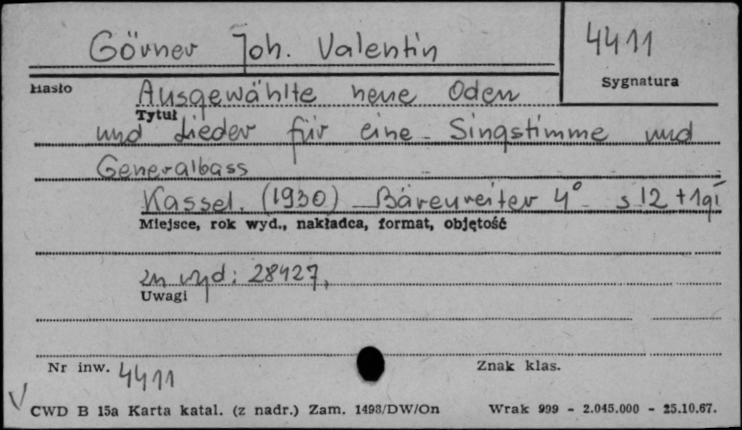 Görner Joh. Valentin
4411
Hasło
Sygnatura
Ausgewählte neue Oden
Tytuł
und Lieder für eine Singstimme und
Generalbass
Kassel. (1930) Bärenreiter 4° s 12 + 1
Miejsce, rok wyd., nakładca, format, objętość
zn wyd: 28427,
Uwagi
Nr inw. 4411
Znak klas.
CWD B 15a Karta katal. (z nadr.) Zam. 1493/DW/On Wrak 999 - 2.045.000 - 25.10.67.